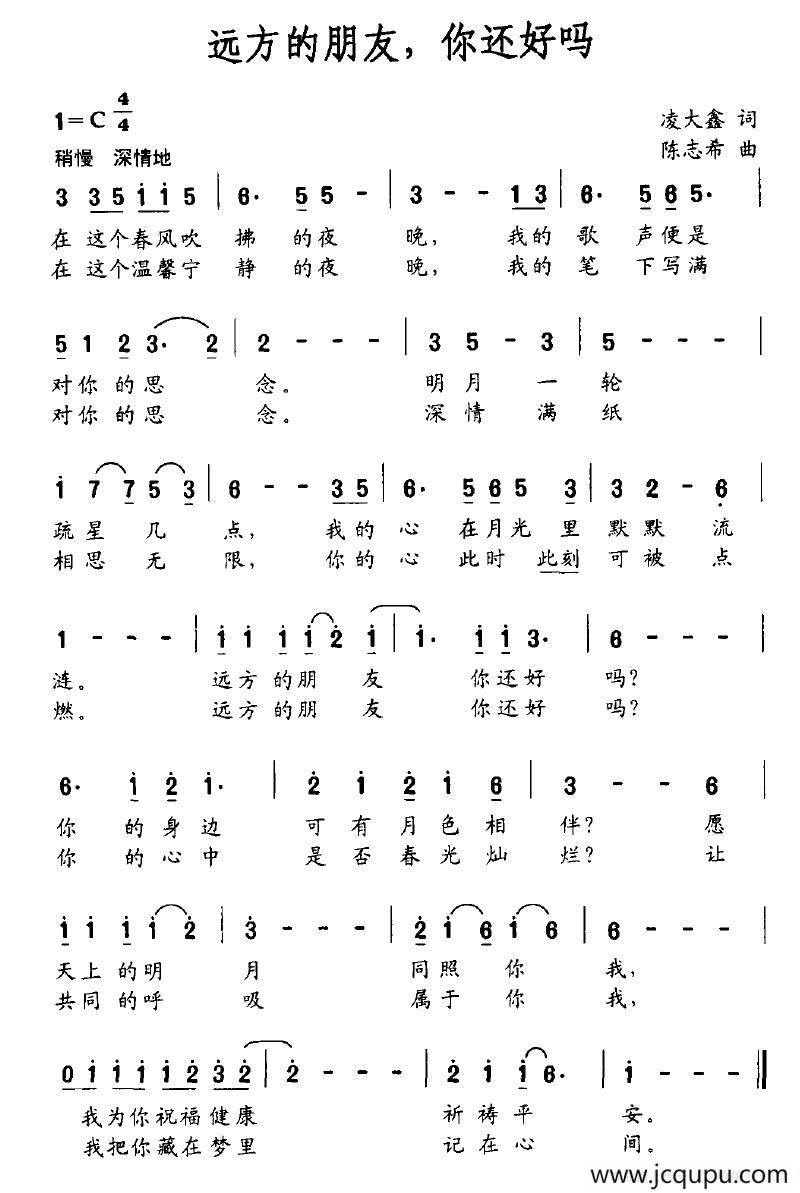 远方的朋友，你还好吗
1=C 4/4
凌大鑫 词
稍慢 深情地
陈志希 曲
3 3 5 1 1 5 | 6· 5 5 | 3 - - 1 3 | 6· 5 6 5· |
在 这个春风吹 拂 的夜 晚， 我的 歌 声便是
在 这个温馨宁 静 的夜 晚， 我的 笔 下写满
5 1 2 3· 2 | 2 - - - | 3 5 - 3 | 5 - - - |
对你 的思 念。 明月 一 轮
对你 的思 念。 深情 满 纸
1 7 7 5 3 | 6 - - 3 5 | 6· 5 6 5 3 | 3 2 - 6 |
疏星 几 点， 我的 心 在月光 里 默默 流
相思 无 限， 你的 心 此时 此刻 可被 点
1 - - - | 1 1 1 1 2 1 | 1· 1 1 3· | 6 - - - |
涟。 远方 的朋 友 你还好 吗？
燃。 远方 的朋 友 你还好 吗？
6· 1 2 1· | 2 1 2 1 6 | 3 - - 6 |
你 的 身 边 可 有 月 色 相 伴？ 愿
你 的 心 中 是 否 春 光 灿 烂？ 让
1 1 1 1 2 | 3 - - - | 2 1 6 1 6 | 6 - - - |
天上 的明 月 同照 你 我，
共同 的呼 吸 属于 你 我，
0 1 1 1 2 3 2 | 2 - - - | 2 1 1 6· | 1 - - - ‖
我为你祝福健康 祈祷平 安。
我把你藏在梦里 记在心 间。
www.jcqupu.com